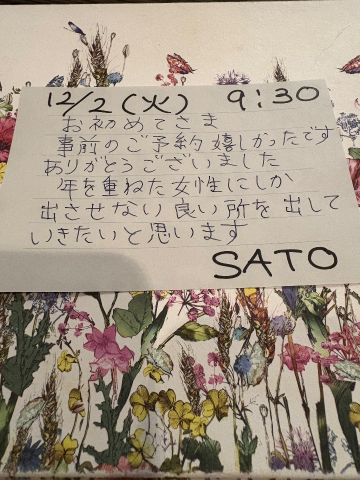 12/2(火) 9:30
お初めてさま
事前のご予約嬉しかったです
ありがとうございました
年を重ねた女性にしか
出させない良い所を出して
いきたいと思います
SATO